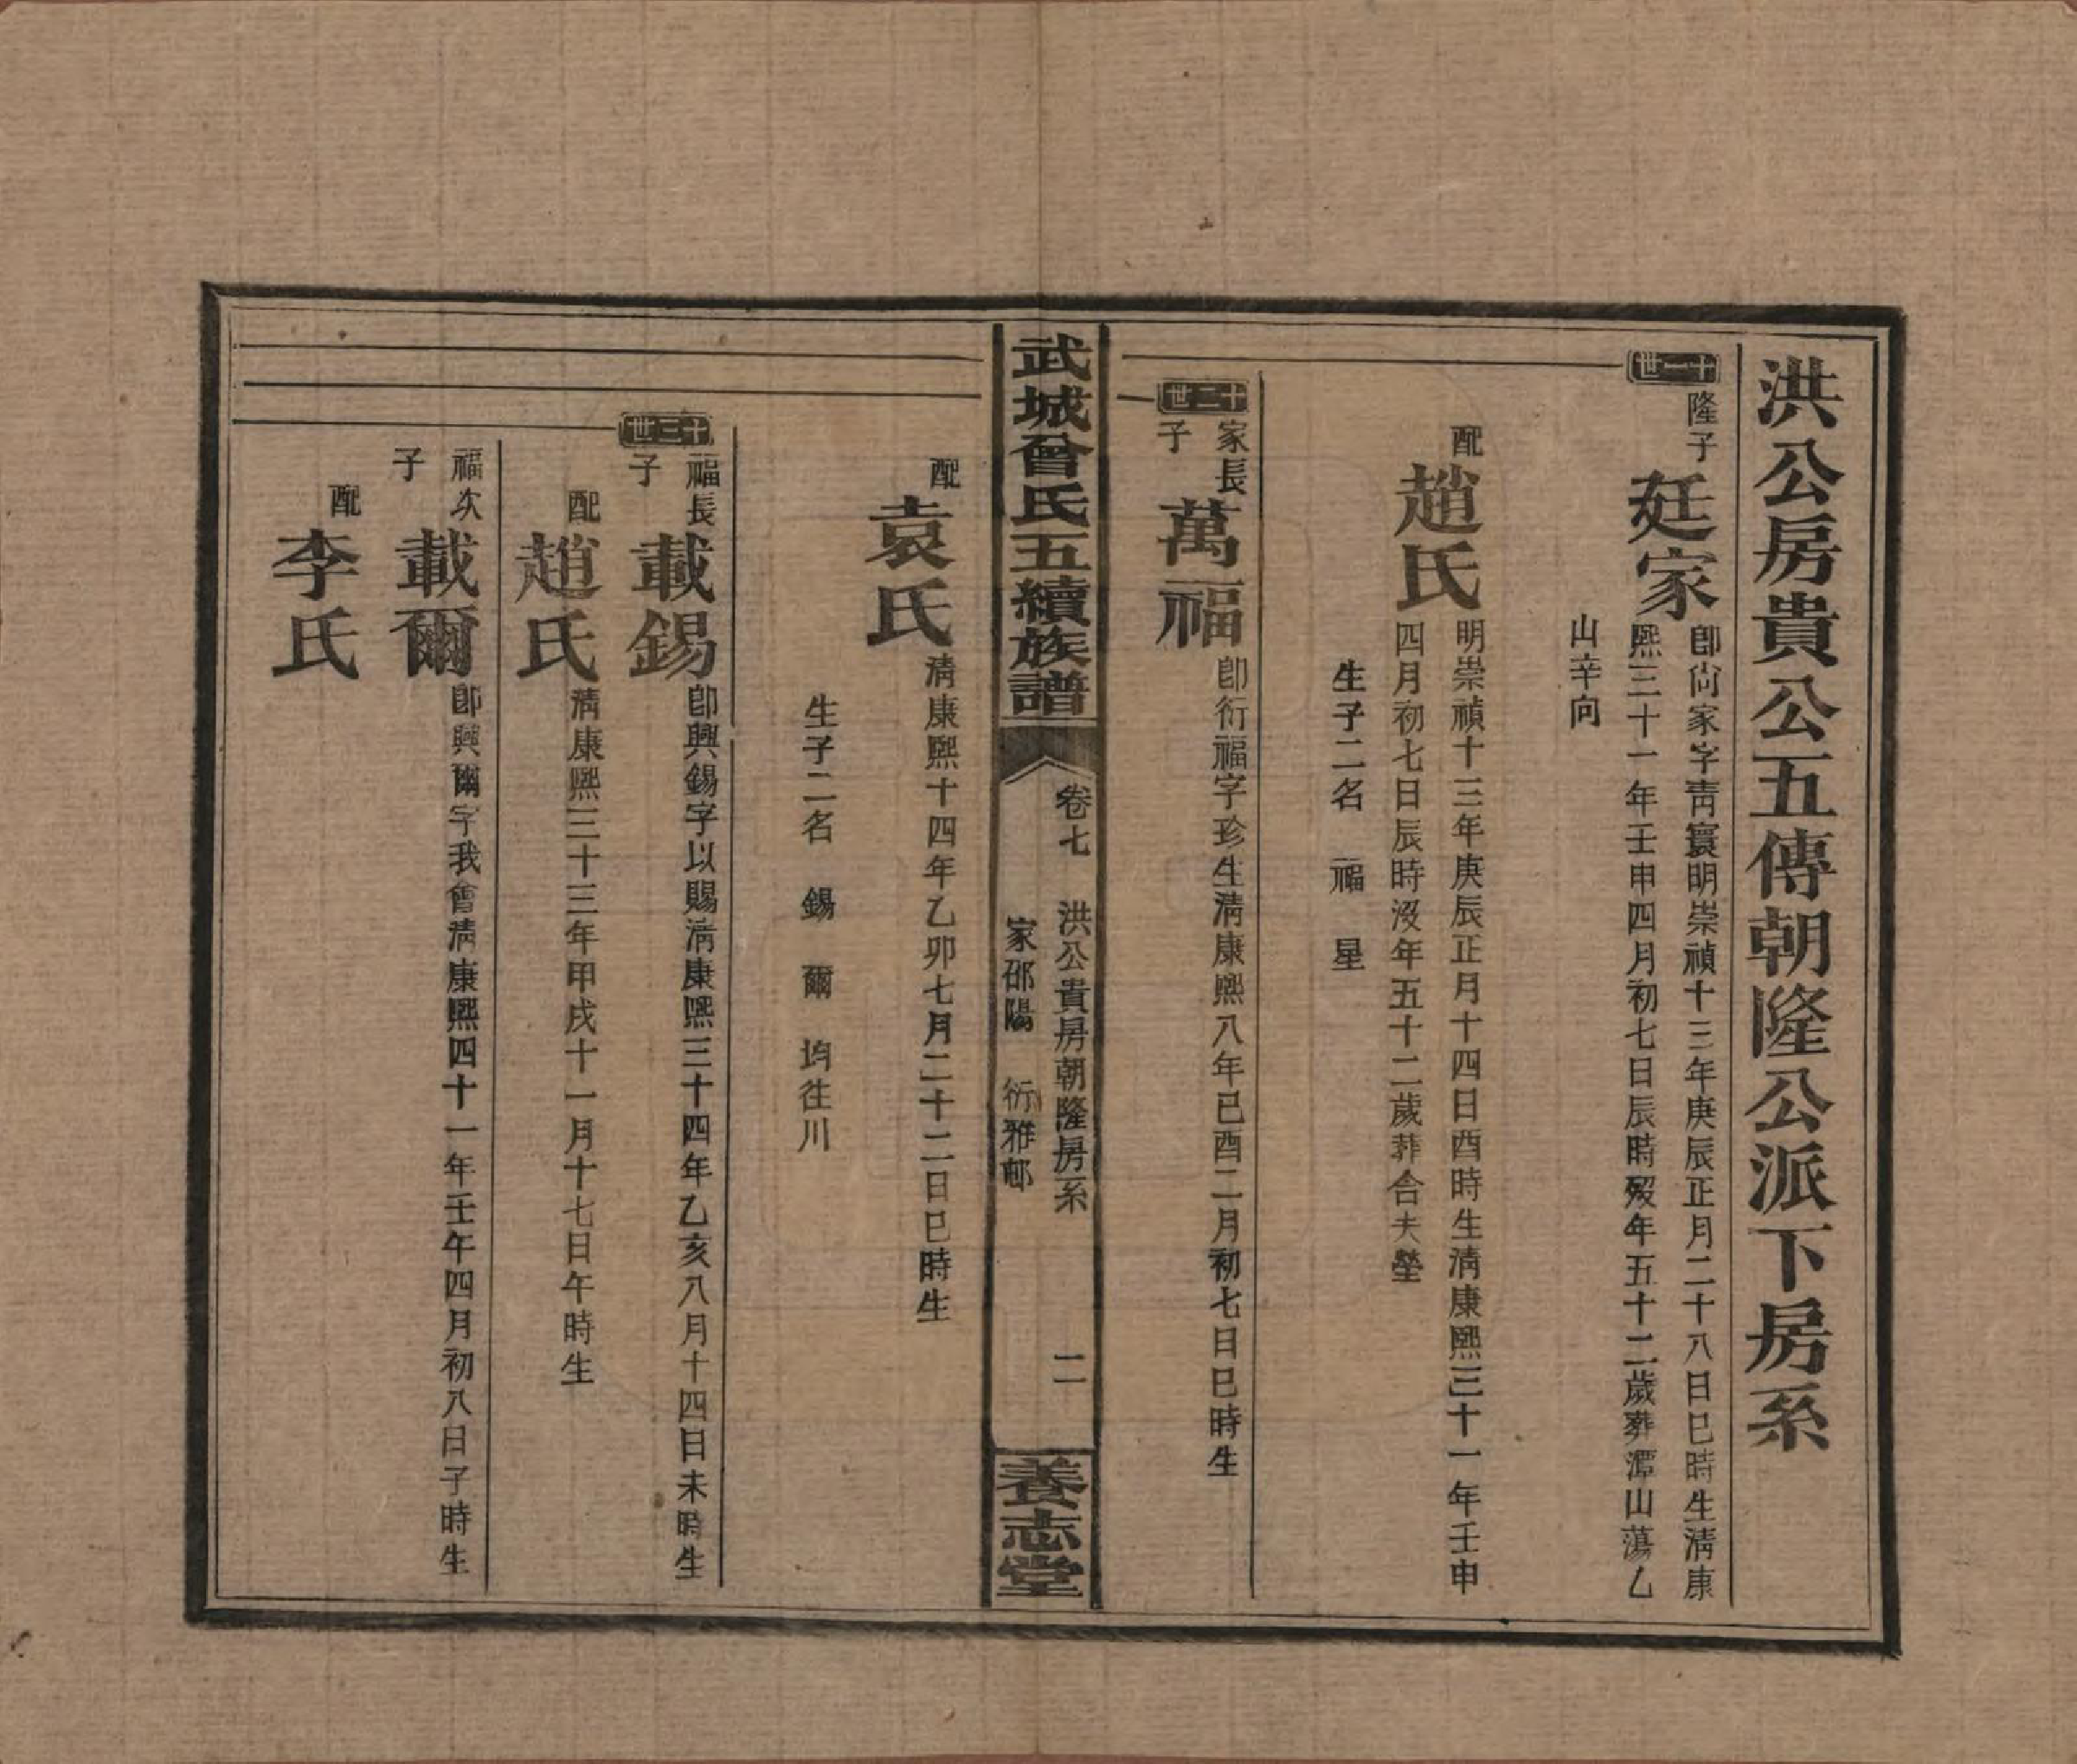 洪公房貴公五傳朝隆公派下房系
十一世
隆子
廷家
卽尙家字靑寰明崇禎十三年庚辰正月二十八日巳時生淸康
熙三十一年壬申四月初七日辰時歿年五十二歲葬潭山蕩乙
山辛向
配
趙氏
明崇禎十三年庚辰正月十四日酉時生淸康熙三十一年壬申
四月初七日辰時沒年五十二歲葬合夫塋
生子二名 福 星
十二世
家長
子
萬福
卽衍福字珍生淸康熙八年己酉二月初七日巳時生
武城曾氏五續族譜
卷七 洪公貴房朝隆房系 二
家邵陽 衍雅邨
養志堂
配
袁氏
淸康熙十四年乙卯七月二十二日巳時生
生子二名 錫 爾 均往川
十三世
福長
子
載錫
卽興錫字以賜淸康熙三十四年乙亥八月十四日未時生
配
趙氏
淸康熙三十三年甲戌十一月十七日午時生
福次
子
載爾
卽興爾字我會淸康熙四十一年壬午四月初八日子時生
配
李氏